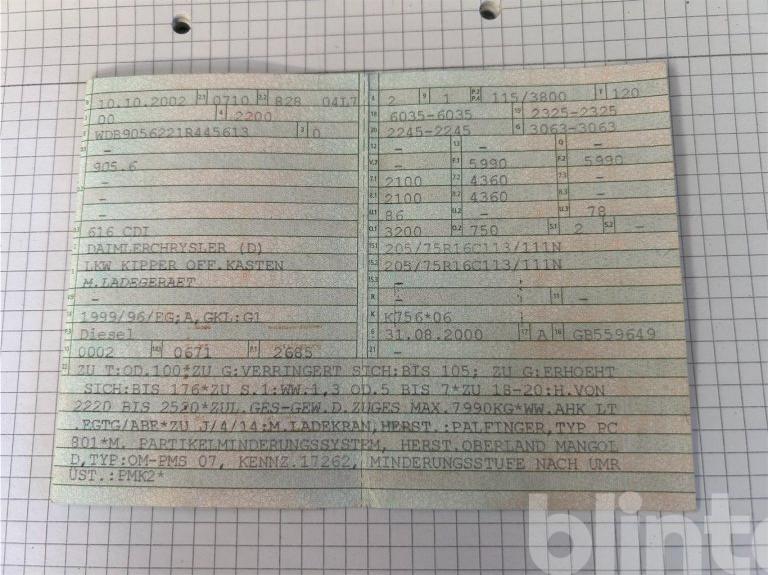 B 10.10.2002 2.1 0710 2.2 828 04L7
00 4 2200
WDB9056221R445613 3 0
-
905.6
-
-
-
616 CDI
DAIMLERCHRYSLER (D)
LKW KIPPER OFF.KASTEN
M.LADEGERAET
-
1999/96/EG;A,GKL:G1
Diesel
0002 0671 P.1 2685
2 9 1 P.2 P.4 115/3800 T 120
18 6035-6035 19 2325-2325
20 2245-2245 G 3063-3063
12 - 13 - Q -
V.7 - F.1 5990 F.2 5990
7.1 2100 7.2 4360 7.3 -
8.1 2100 8.2 4360 8.3 -
U.1 86 U.2 - U.3 78
O.1 3200 O.2 750 S.1 2 S.2 -
15.1 205/75R16C113/111N
15.2 205/75R16C113/111N
15.3 -
R - 11 -
K K756*06
6 31.08.2000 17 A 16 GB559649
21 -
22 ZU T:OD.100*ZU G:VERRINGERT SICH:BIS 105; ZU G:ERHOEHT
SICH:BIS 176*ZU S.1:WW.1,3 OD.5 BIS 7*ZU 18-20:H.VON
2220 BIS 2520*ZUL.GES-GEW.D.ZUGES MAX.7990KG*WW.AHK LT
.EGTG/ABE*ZU J/4/14:M.LADEKRAN,HERST.:PALFINGER,TYP PC
801*M. PARTIKELMINDERUNGSSYSTEM, HERST.OBERLAND MANGOL
D,TYP:OM-PMS 07, KENNZ.17262, MINDERUNGSSTUFE NACH UMR
UST.:PMK2*
blinto